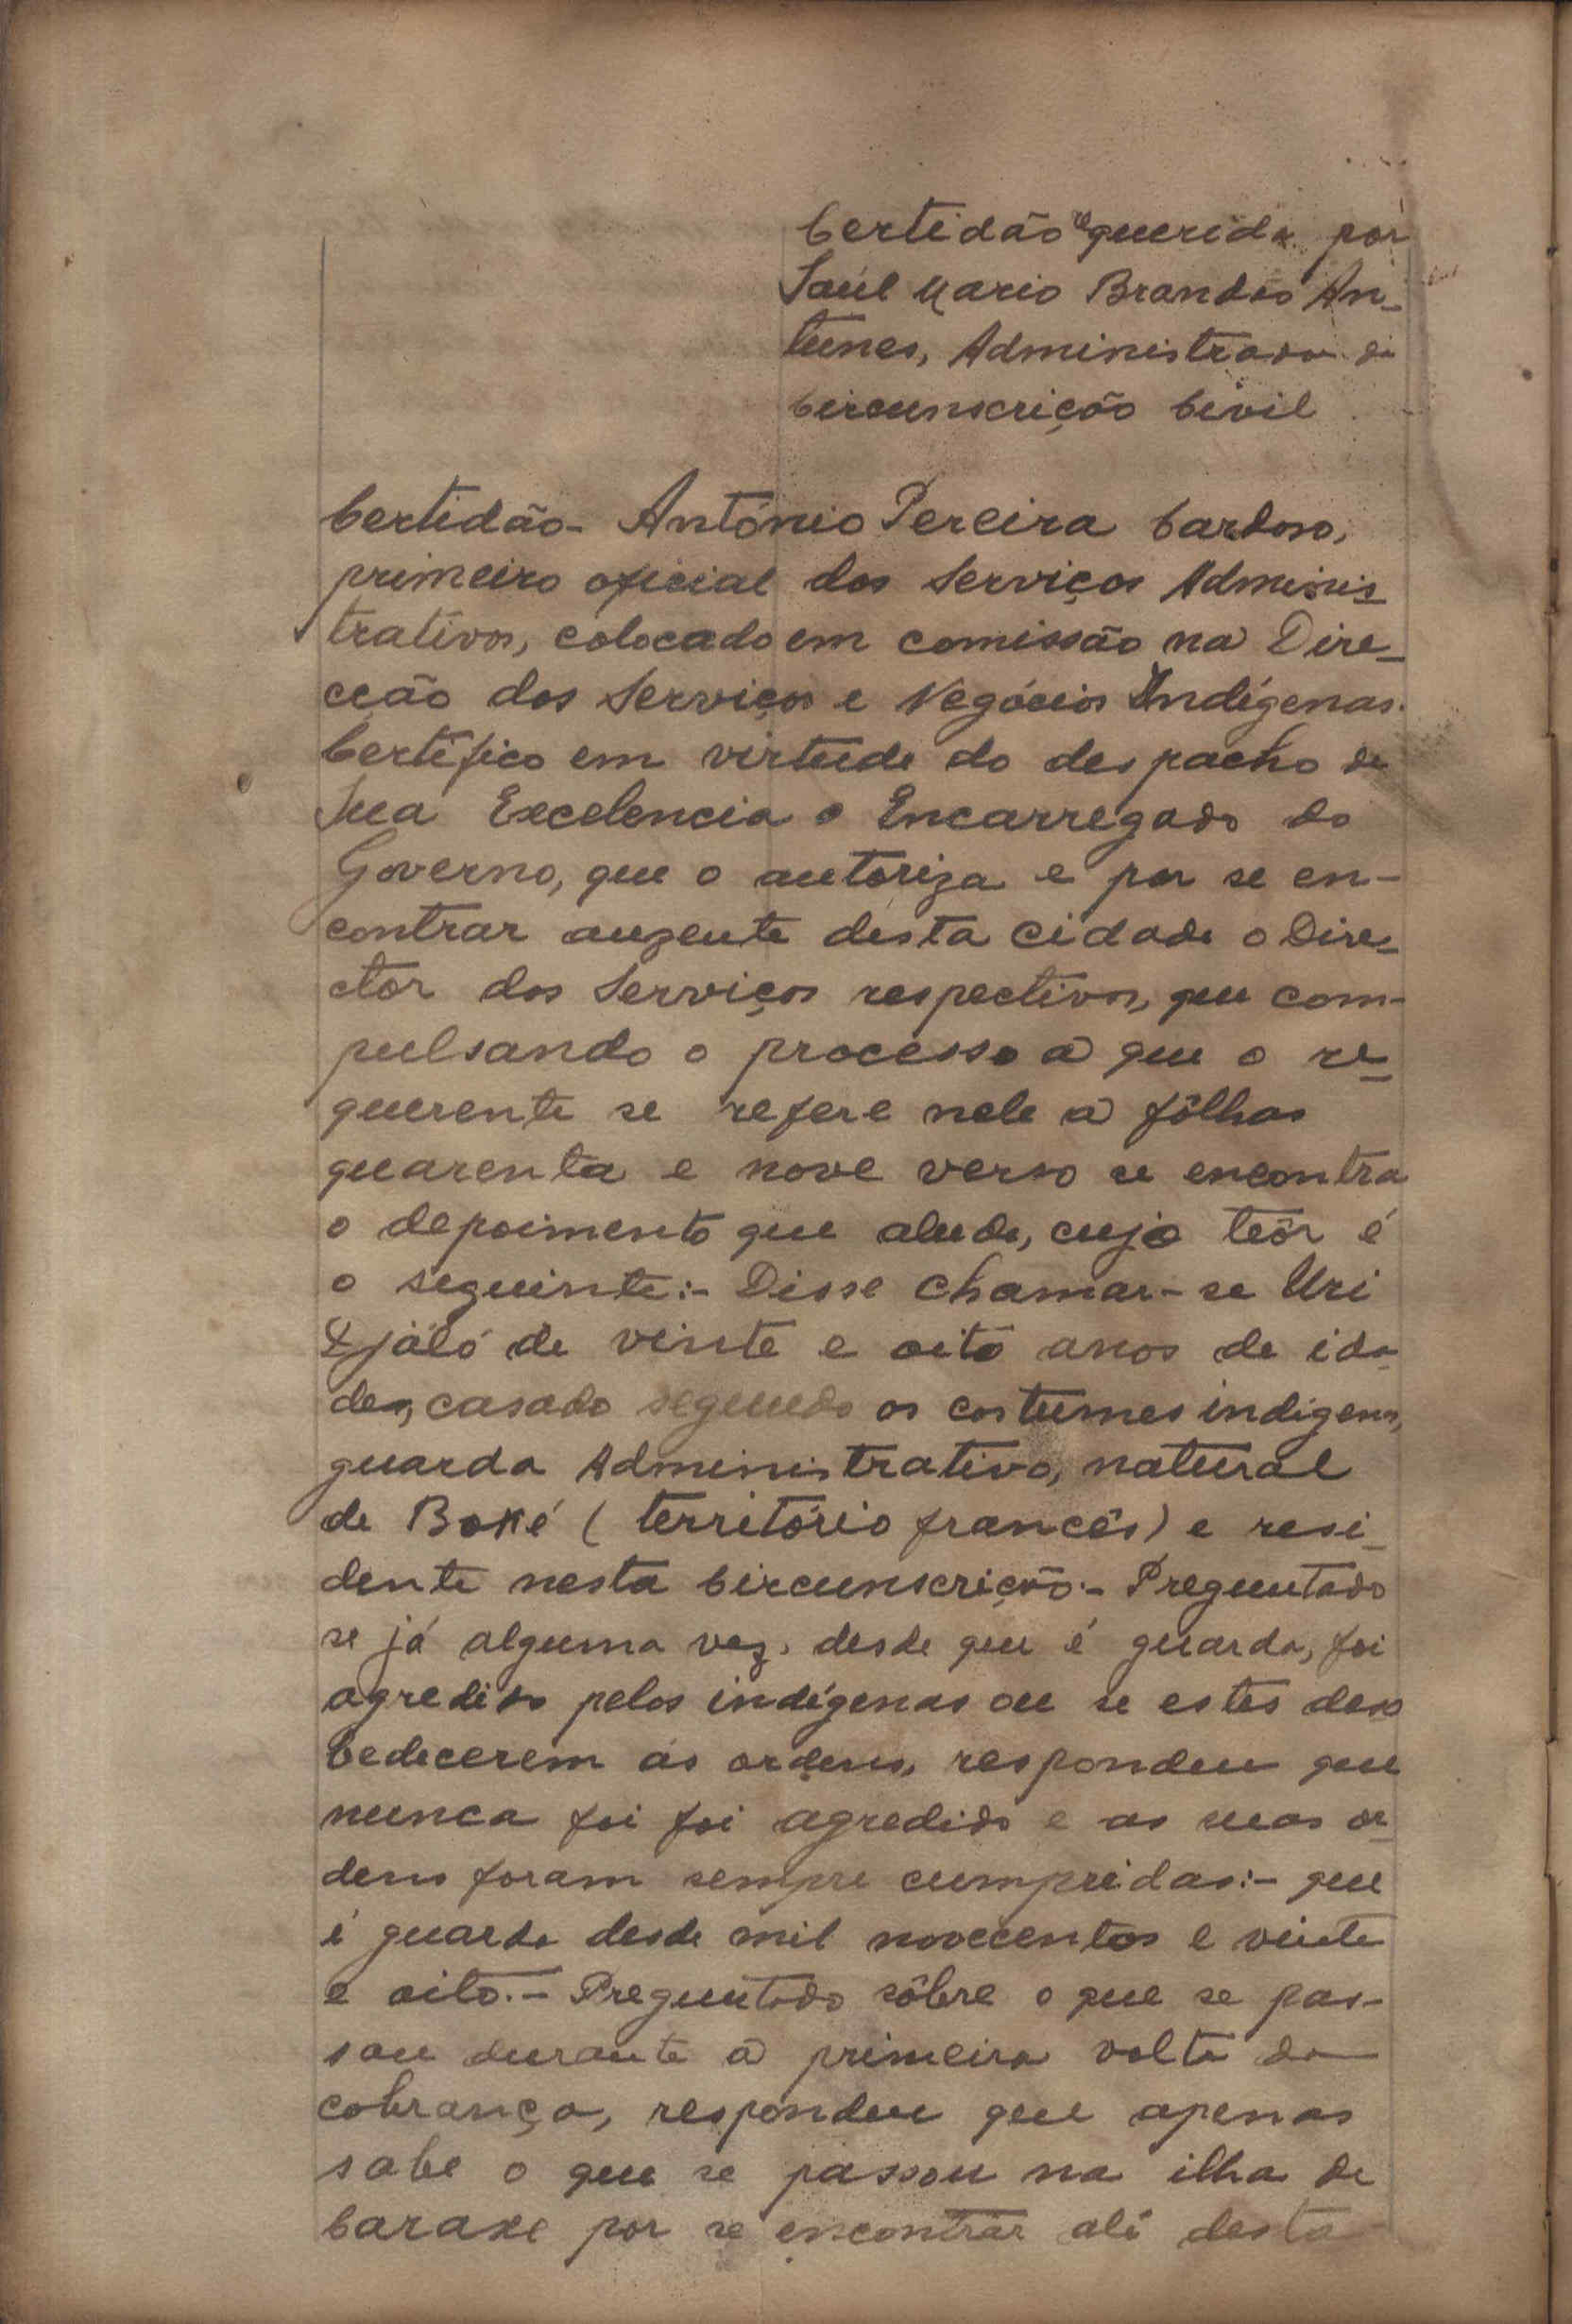 Certidão requerida por
Saúl Mario Brandão An-
tunes, Administrador de
Circunscrição Civil
Certidão- António Pereira Cardoso,
primeiro oficial dos Serviços Adminis-
trativos, colocado em comissão na Dire-
cção dos Serviços e Negócios Indígenas.
Certifico em virtude do despacho de
Sua Excelencia o Encarregado do
Governo, que o autoriza e por se en-
contrar auzente desta cidade o Dire-
ctor dos Serviços respectivos, que com-
pulsando o processo a que o re-
querente se refere nele a fôlhas
quarenta e nove verso se encontra
o depoimento que alude, cujo teôr é
o seguinte:- Disse chamar-se Uri
Djaló de vinte e oito anos de ida-
de, casado segundo os costumes indigenas,
guarda Administrativo, natural
de Boké (território francês) e resi-
dente nesta Circunscrição:- Preguntado
se já alguma vez, desde que é guarda, foi
agredido pelos indígenas ou se estes deso
bedecerem ás ordens, respondeu que
nunca foi foi agredido e as suas or-
dens foram sempre cumpridas:- que
é guarda desde mil novecentos e vinte
e oito.- Preguntado sôbre o que se pas-
sou durante a primeira volta da
cobrança, respondeu que apenas
sabe o que se passou na ilha de
Caraxe por se encontrar ali desta